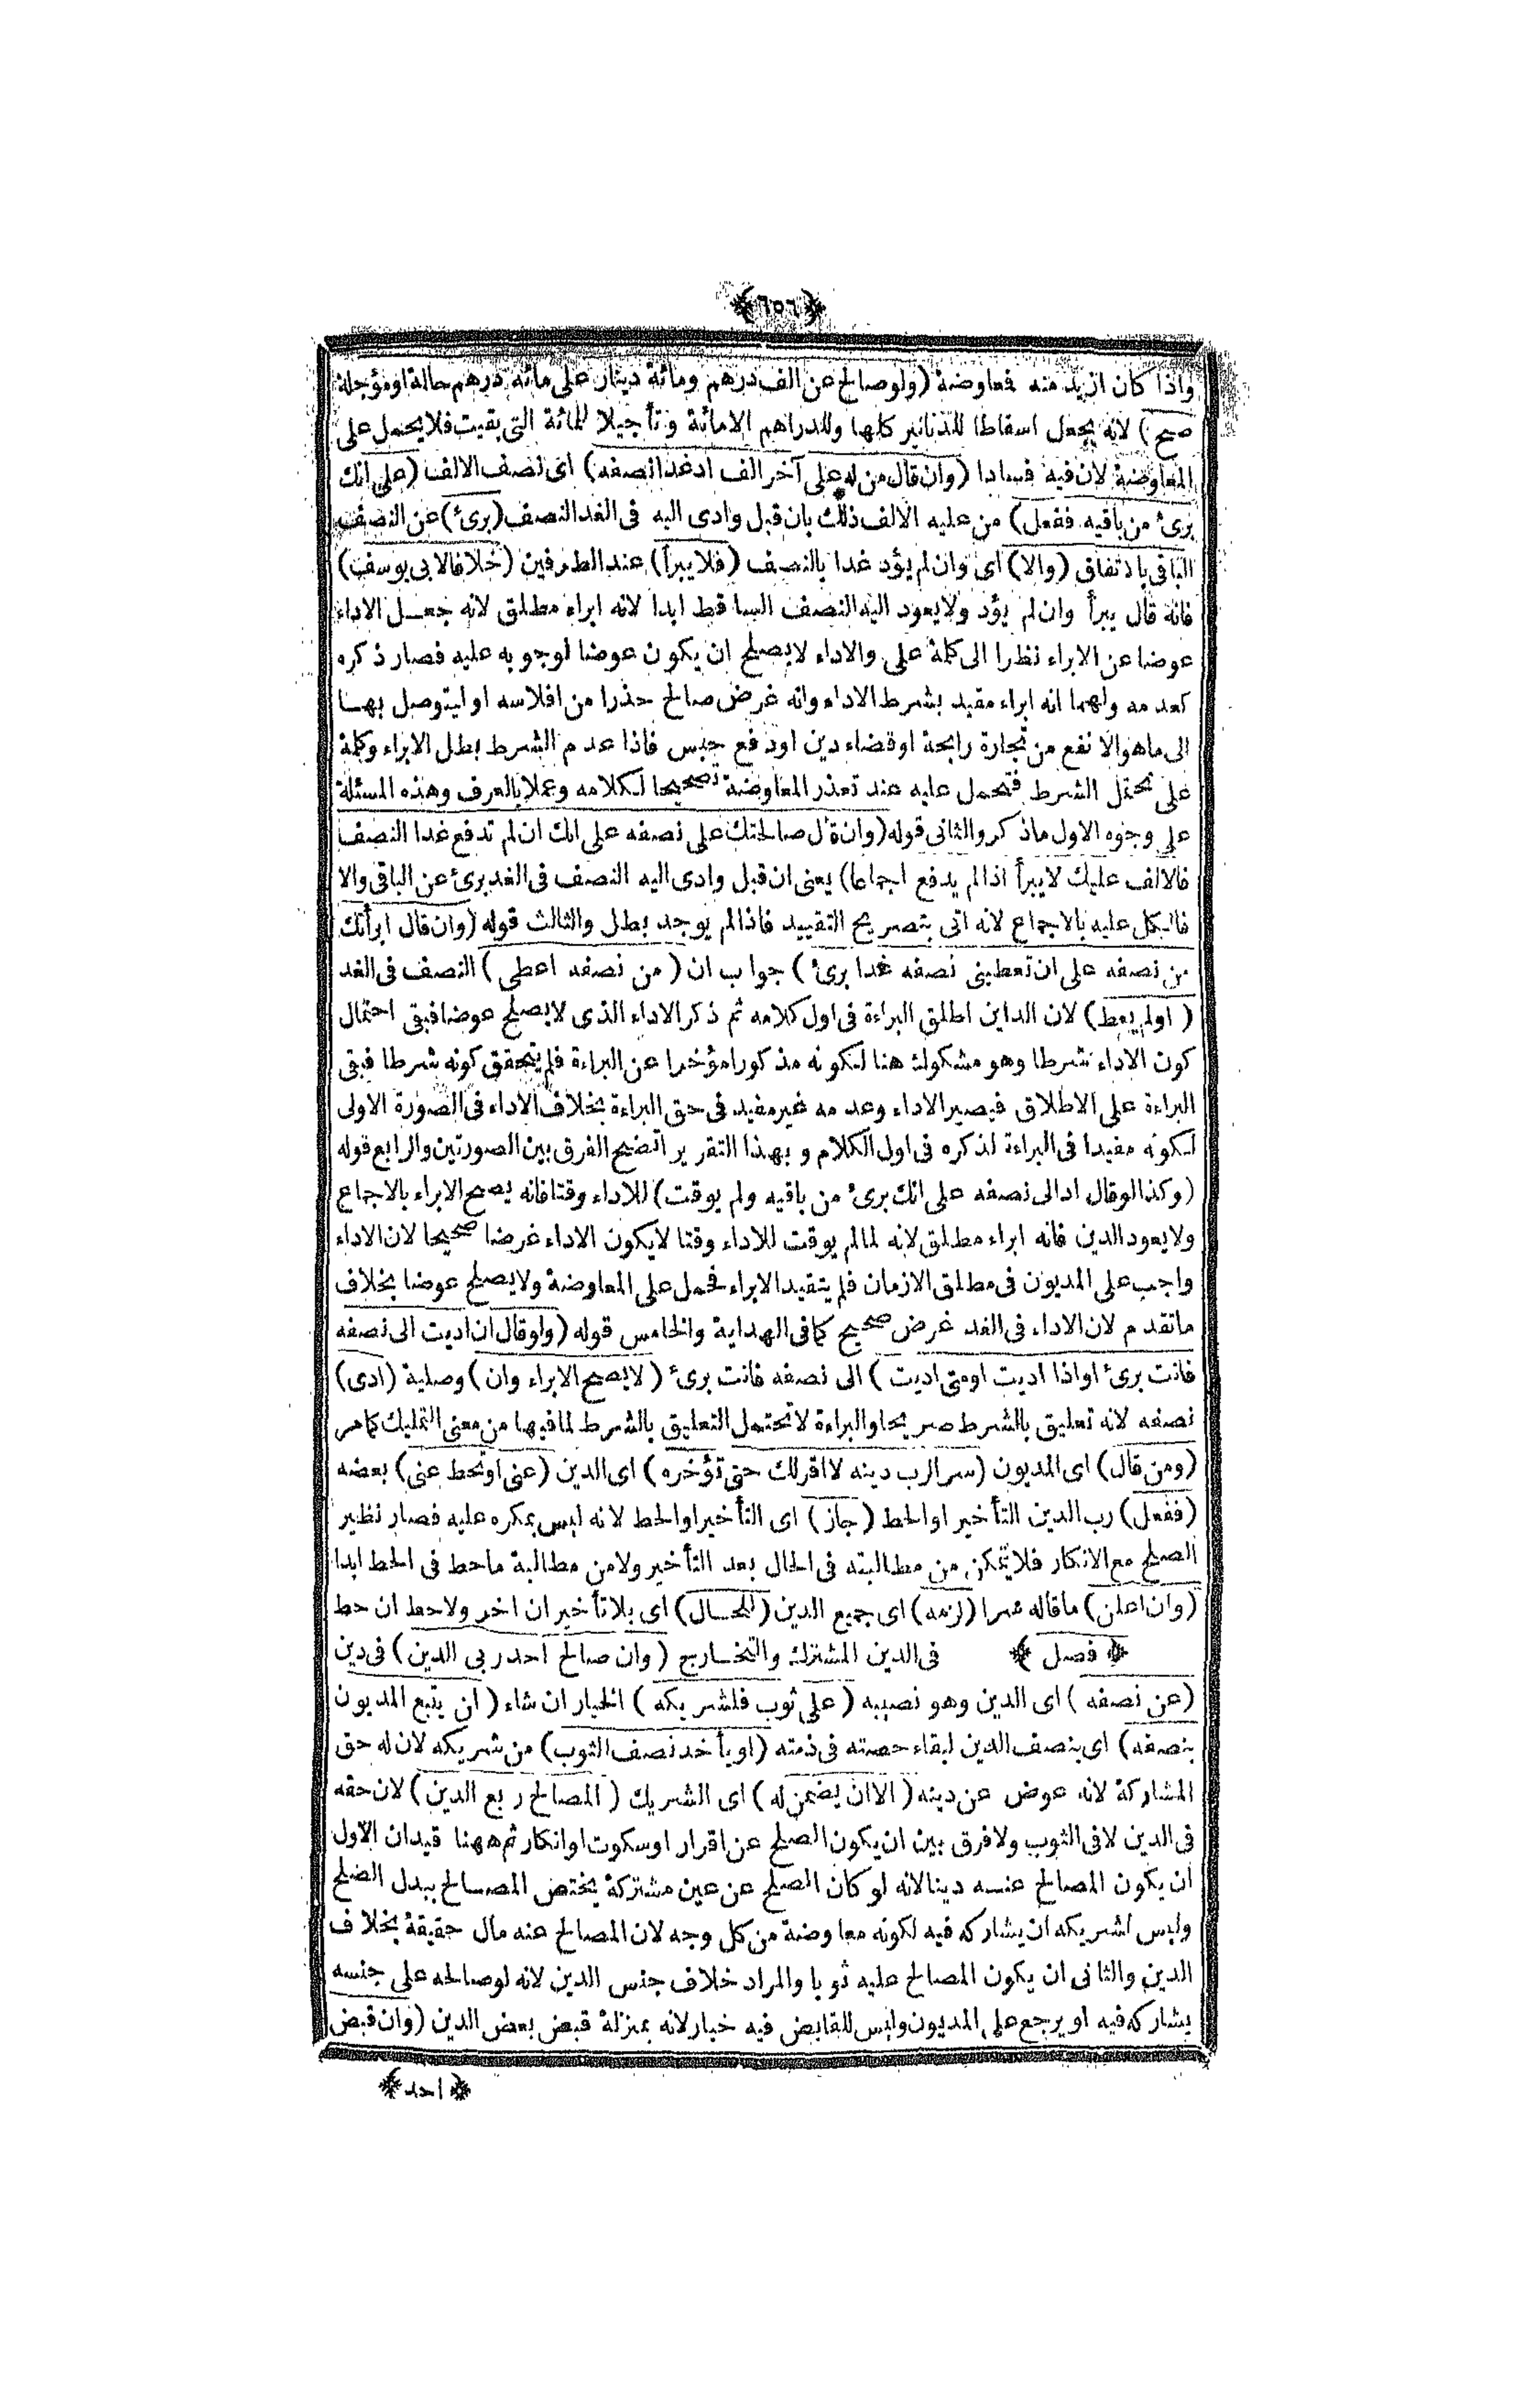 ﴿٦٥٦﴾
واذا كان ازيد منه فعاوضة (ولو صالح عن الف درهم ومائة دينار على مائة درهم حالة او مؤجلة
صح) لانه يجعل اسقاطا للدنانير كلها وللدراهم الا مائة وتأجيلا للمائة التى بقيت فلا يحمل على
المعاوضة لان فيه فسادا (وان قال من له على آخر الف ادغدا نصفه) اى نصف الالف (على انك
برئ من باقيه ففعل) من عليه الالف ذلك بان قبل وادى اليه فى الغد النصف (برئ) عن النصف
الباقى بالاتفاق (والا) اى وان لم يؤد غدا بالنصف (فلا يبرأ) عند الطرفين (خلافا لابى يوسف)
فانه قال يبرأ وان لم يؤد ولا يعود اليه النصف الساقط ابدا لانه ابراء مطلق لانه جعل الاداء
عوضا عن الابراء نظرا الى كلمة على والاداء لا يصلح ان يكون عوضا لوجوبه عليه فصار ذكره
كعدمه ولهما انه ابراء مقيد بشرط الاداء وانه غرض صالح حذرا من افلاسه او ليتوصل بها
الى ماهو الانفع من تجارة رابحة او قضاء دين او دفع حبس فاذا عدم الشرط بطل الابراء وكلمة
على تحتمل الشرط فتحمل عليه عند تعذر المعاوضة تصحيحا لكلامه وعملا بالعرف وهذه المسئلة
على وجوه الاول ماذكر والثانى قوله (وان قال صالحتك على نصفه على انك ان لم تدفع غدا النصف
فالالف عليك لا يبرأ اذا لم يدفع اجماعا) يعنى ان قبل وادى اليه النصف فى الغد برئ عن الباقى والا
فالكل عليه بالاجماع لانه اتى بتصريح التقييد فاذا لم يوجد بطل والثالث قوله (وان قال ابرأتك
من نصفه على ان تعطينى نصفه غدا برئ) جواب ان (من نصفه اعطى) النصف فى الغد
(اولم يعط) لان الداين اطلق البراءة فى اول كلامه ثم ذكر الاداء الذى لا يصلح عوضا فبقى احتمال
كون الاداء شرطا وهو مشكوك هنا لكونه مذكورا مؤخرا عن البراءة فلم يتحقق كونه شرطا فبقى
البراءة على الاطلاق فيصير الاداء وعدمه غير مفيد فى حق البراءة بخلاف الاداء فى الصورة الاولى
لكونه مفيدا فى البراءة لذكره فى اول الكلام وبهذا التقرير اتضح الفرق بين الصورتين والرابع قوله
(وكذا لوقال ادالى نصفه على انك برئ من باقيه ولم يوقت) للاداء وقتا فانه يصح الابراء بالاجماع
ولا يعود الدين فانه ابراء مطلق لانه لما لم يوقت للاداء وقتا لا يكون الاداء غرضا صحيحا لان الاداء
واجب على المديون فى مطلق الازمان فلم يتقيد الابراء فحمل على المعاوضة ولا يصلح عوضا بخلاف
ماتقدم لان الاداء فى الغد غرض صحيح كما فى الهداية والخامس قوله (ولوقال ان اديت الى نصفه
فانت برئ او اذا اديت او متى اديت) الى نصفه فانت برئ (لا يصح الابراء وان) وصلية (ادى)
نصفه لانه تعليق بالشرط صريحا والبراءة لا تحتمل التعليق بالشرط لمافيها من معنى التمليك كما مر
(ومن قال) اى المديون (سرا لرب دينه لا اقر لك حتى تؤخره) اى الدين (عنى او تحط عنى) بعضه
(ففعل) رب الدين التأخير او الحط (جاز) اى التأخير او الحط لانه ليس بمكره عليه فصار نظير
الصلح مع الانكار فلا يتمكن من مطالبته فى الحال بعد التأخير ولا من مطالبة ماحط فى الحط ابدا
(وان اعلن) ماقاله سرا (لزمه) اى جميع الدين (للحال) اى بلا تأخير ان اخر ولا حط ان حط
﴿ فصل ﴾ فى الدين المشترك والتخارج (وان صالح احد ربى الدين) فى دين
(عن نصفه) اى الدين وهو نصيبه (على ثوب فلشريكه) الخيار ان شاء (ان يتبع المديون
بنصفه) اى بنصف الدين لبقاء حصته فى ذمته (او يأخذ نصف الثوب) من شريكه لان له حق
المشاركة لانه عوض عن دينه (الا ان يضمن له) اى الشريك (المصالح ربع الدين) لان حقه
فى الدين لا فى الثوب ولا فرق بين ان يكون الصلح عن اقرار او سكوت او انكار ثم ههنا قيدان الاول
ان يكون المصالح عنه دينا لانه لو كان الصلح عن عين مشتركة يختص المصالح ببدل الصلح
وليس لشريكه ان يشاركه فيه لكونه معاوضة من كل وجه لان المصالح عنه مال حقيقة بخلاف
الدين والثانى ان يكون المصالح عليه ثوبا والمراد خلاف جنس الدين لانه لو صالحه على جنسه
يشاركه فيه او يرجع على المديون وليس للقابض فيه خيار لانه بمنزلة قبض بعض الدين (وان قبض
﴿احد﴾